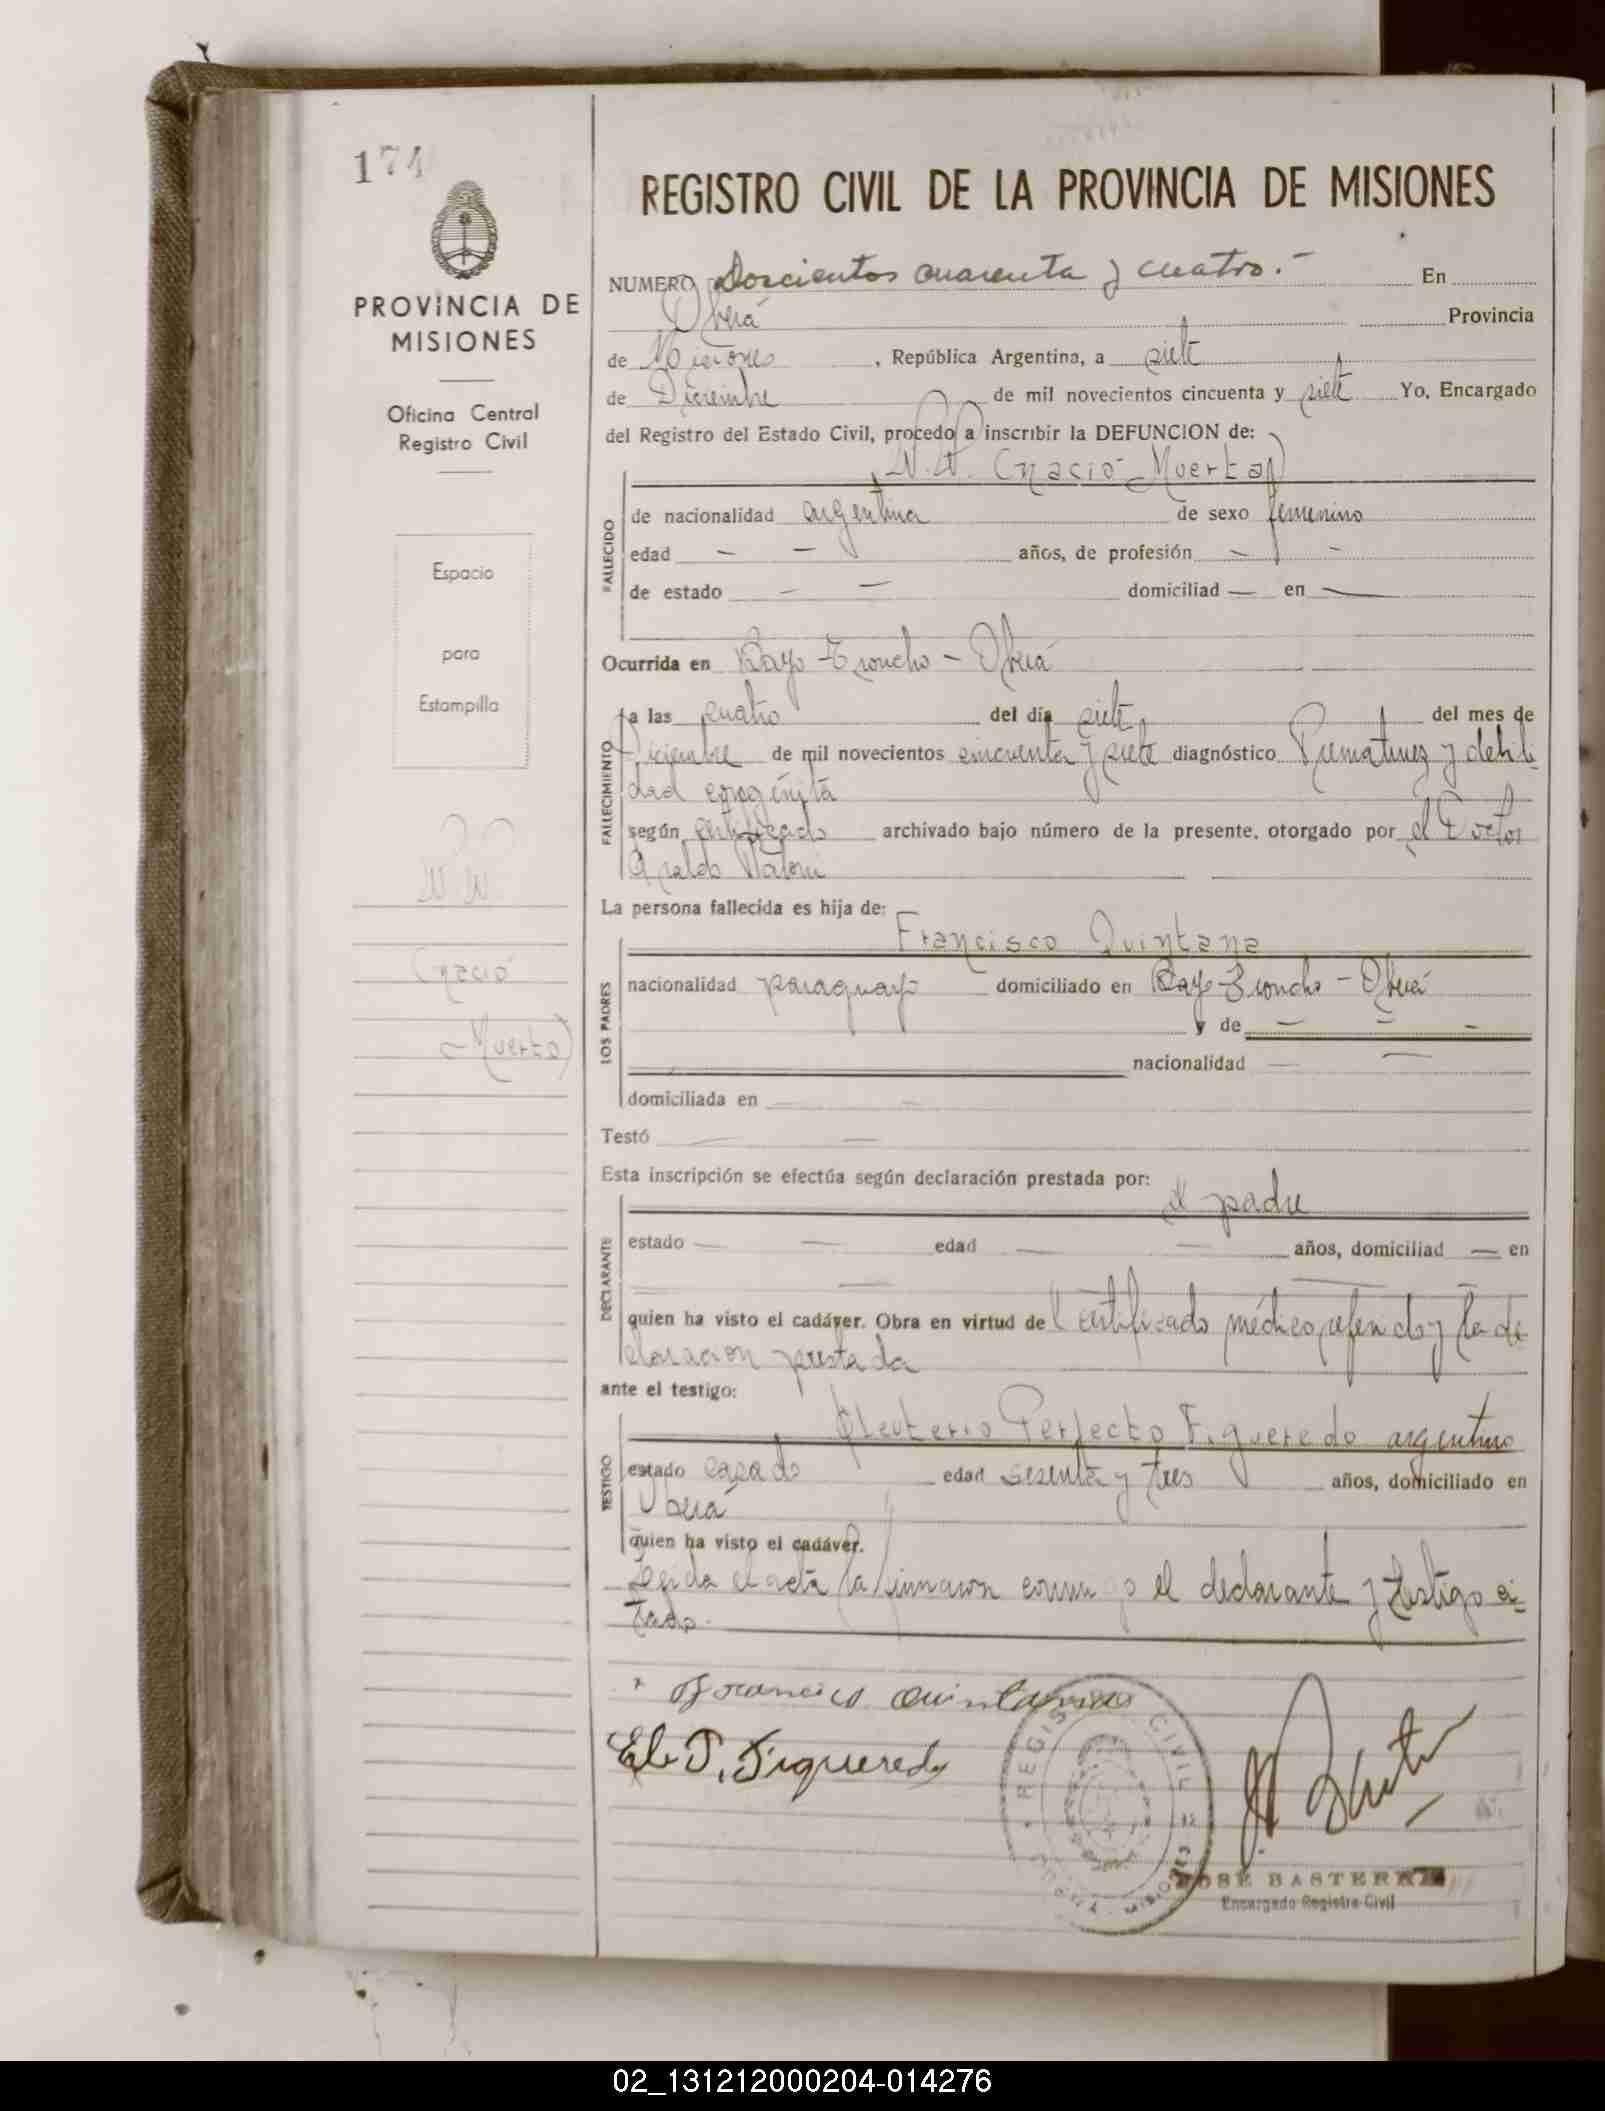 174
PROVINCIA DE
MISIONES
Oficina Central
Registro Civil
Espacio
para
Estampilla
N.N.
(Nació
-Muerta)
REGISTRO CIVIL DE LA PROVINCIA DE MISIONES
NUMERO Doscientos cuarenta y cuatro.- En
Oberá Provincia
de Misiones, República Argentina, a siete
de Diciembre de mil novecientos cincuenta y siete Yo, Encargado
del Registro del Estado Civil, procedo a inscribir la DEFUNCION de:
N.N. (Nació-Muerta)
FALLECIDO
de nacionalidad argentina de sexo femenino
edad - - años, de profesión - -
de estado - - domiciliad - en -
Ocurrida en Bayo-Troncho - Oberá
FALLECIMIENTO
a las cuatro del día siete del mes de
Diciembre de mil novecientos cincuenta y siete diagnóstico Prematurez y debili
dad congénita
según certificado archivado bajo número de la presente, otorgado por el Doctor
La persona fallecida es hija de:
LOS PADRES
Francisco Quintana
nacionalidad paraguayo domiciliado en Bayo-Troncho - Oberá
y de - - -
nacionalidad -
domiciliada en -
Testó - -
Esta inscripción se efectúa según declaración prestada por:
el padre
DECLARANTE
estado - - edad - - años, domiciliad - en
- -
quien ha visto el cadáver. Obra en virtud del certificado médico referido y la de
claracion prestada
ante el testigo:
TESTIGO
Eleuterio Perfecto Figueredo argentino
estado casado edad sesenta y tres años, domiciliado en
Oberá
quien ha visto el cadáver.
Leida el acta la firmaron conmigo el declarante y testigo ci-
tado.
Francisco Quintana
El. P. Figueredo
REGISTRO CIVIL
MISIONES
JOSE BASTERRA
Encargado Registro Civil
02_131212000204-014276